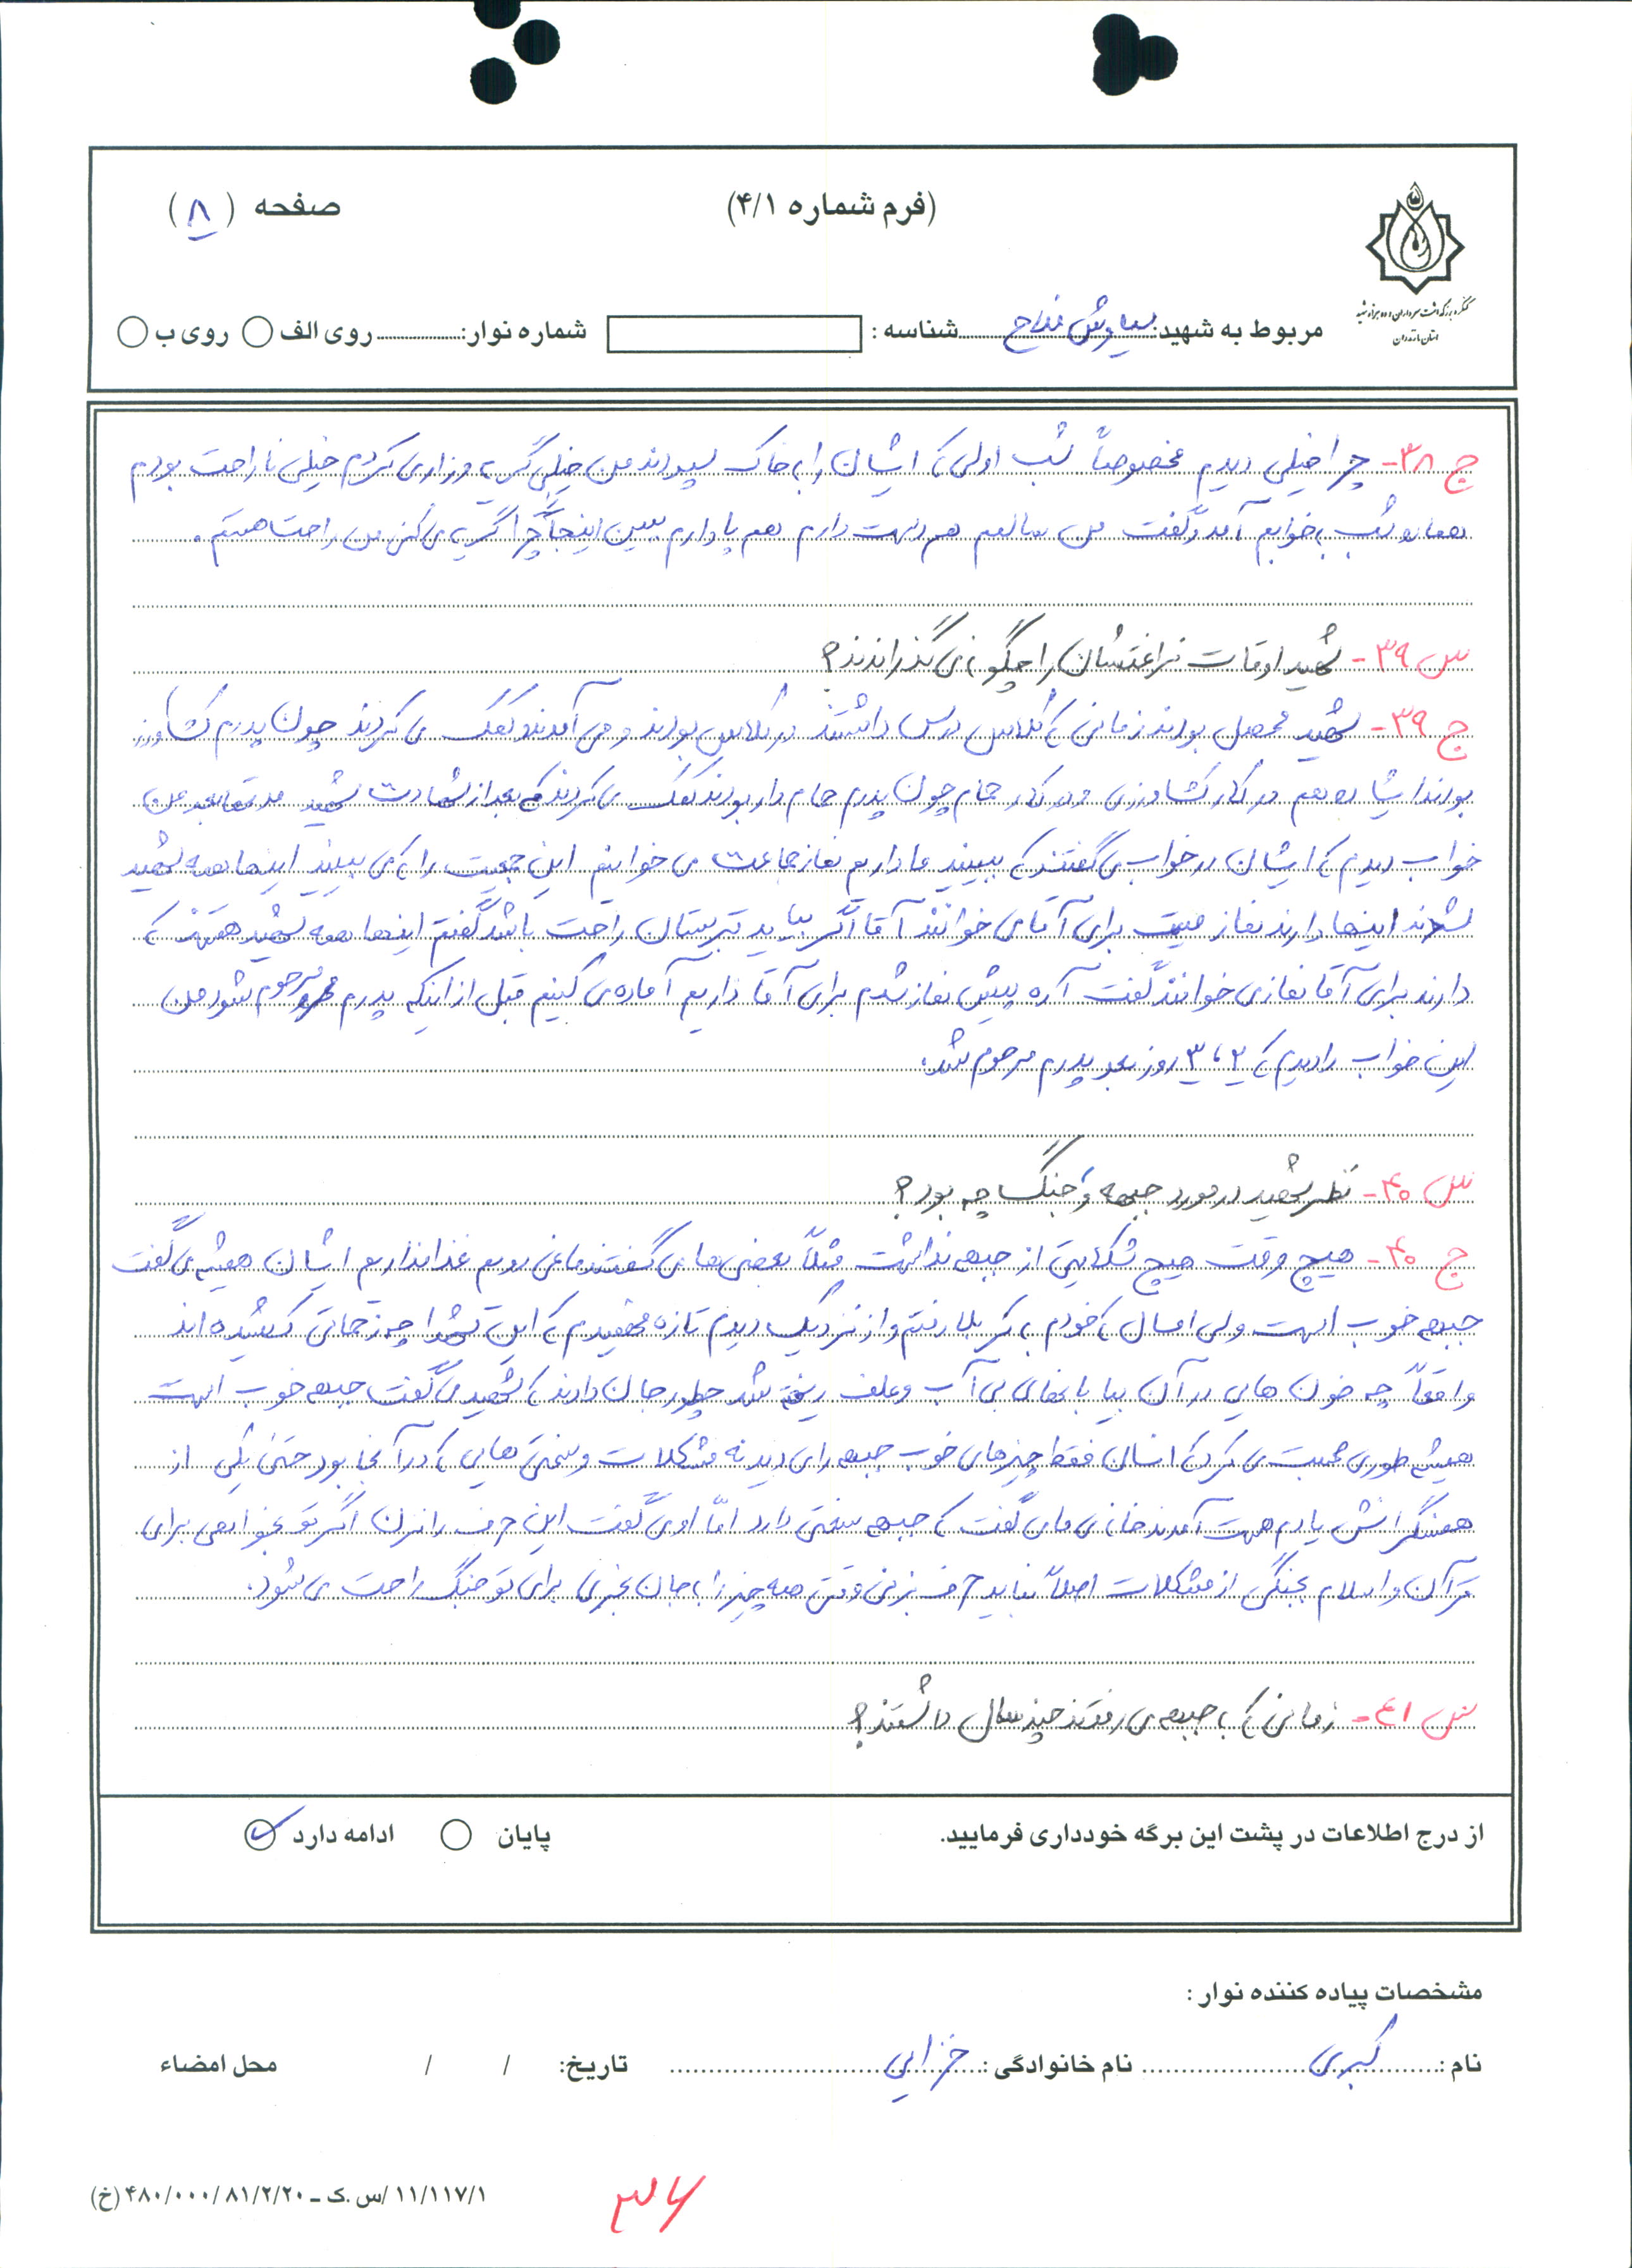 (فرم شماره ۴/۱)
صفحه (۸)
کنگره بزرگداشت سرداران و ده هزار شهید
استان مازندران
مربوط به شهید: سیاوش فلاح شناسه : شماره نوار: روی الف روی ب
ج ۳۸- چرا خیلی دیدم مخصوصاً شب اولی که ایشان را به خاک سپردند من خیلی گریه و زاری کردم خیلی ناراحت بودم
همان شب به خوابم آمد و گفت من سالمم هم دست دارم هم پا دارم ببین اینجا چرا گریه می کنی من راحت هستم.
س ۳۹- شهید اوقات فراغتشان را چگونه می گذراندند؟
ج ۳۹- شهید محصل بودند زمانی که کلاس درس داشتند در کلاس بودند و می آمدند کمک می کردند چون پدرم کشاورز
بودند ایشان هم در کار کشاورزی و در کار حمام چون پدرم حمام دار بودند کمک می کردند که بعد از شهادت شهید مدتها بعد من
خواب دیدم که ایشان در خواب می گفتند که ببینید ما داریم نماز جماعت می خوانیم این جمعیت را که می بینید اینها همه شهید
شدند اینها دارند نماز میت برای آقا می خوانند آقا اگر بیاید تربیتتان راحت باشد گفتم اینها همه شهید هستند که
دارند برای آقا نماز می خوانند گفت آره پیش نماز شدم برای آقا داریم آماده می کنیم قبل از اینکه پدرم مرحوم شود من
این خواب را دیدم که ۲، ۳ روز بعد پدرم مرحوم شد.
س ۴۰- نظر شهید در مورد جبهه و جنگ چه بود؟
ج ۴۰- هیچ وقت هیچ شکایتی از جبهه نداشت مثلاً بعضی ها می گفتند ما نمی رویم غذا نداریم ایشان همیشه می گفت
جبهه خوب است ولی امسال که خودم به کربلا رفتم و از نزدیک دیدم تازه فهمیدم که این شهدا چه زحماتی کشیده اند
واقعاً چه خون هایی در آن بیابانهای بی آب و علف ریخته شد چطور جان دادند که شهید می گفت جبهه خوب است
همیشه طوری صحبت می کرد که انسان فقط چیزهای خوب جبهه را می دید نه مشکلات و سختی هایی که در آنجا بود حتی یکی از
همسنگرانش یادم هست آمدند خانه ی ما می گفت که جبهه سختی دارد امّا او می گفت این حرف را نزن اگر تو بخواهی برای
قرآن و اسلام بجنگی از مشکلات اصلاً نباید حرف بزنی وقتی همه چیز را به جان بخری برای تو جنگ راحت می شود.
س ۴۱- زمانی که به جبهه می رفتند چند سال داشتند؟
از درج اطلاعات در پشت این برگه خودداری فرمایید. پایان ادامه دارد
مشخصات پیاده کننده نوار :
نام : کبری نام خانوادگی : خزایی تاریخ: / / محل امضاء
۱۱/۱۱۷/۱ /س.ک ـ ۴۸۰/۰۰۰/۸۱/۲/۲۰ (خ)
۳۶